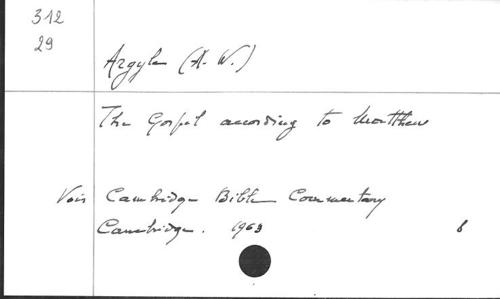 312
29
Argyle (A. W.)
The Gospel according to Matthew
Voir Cambridge Bible Commentary
Cambridge. 1963